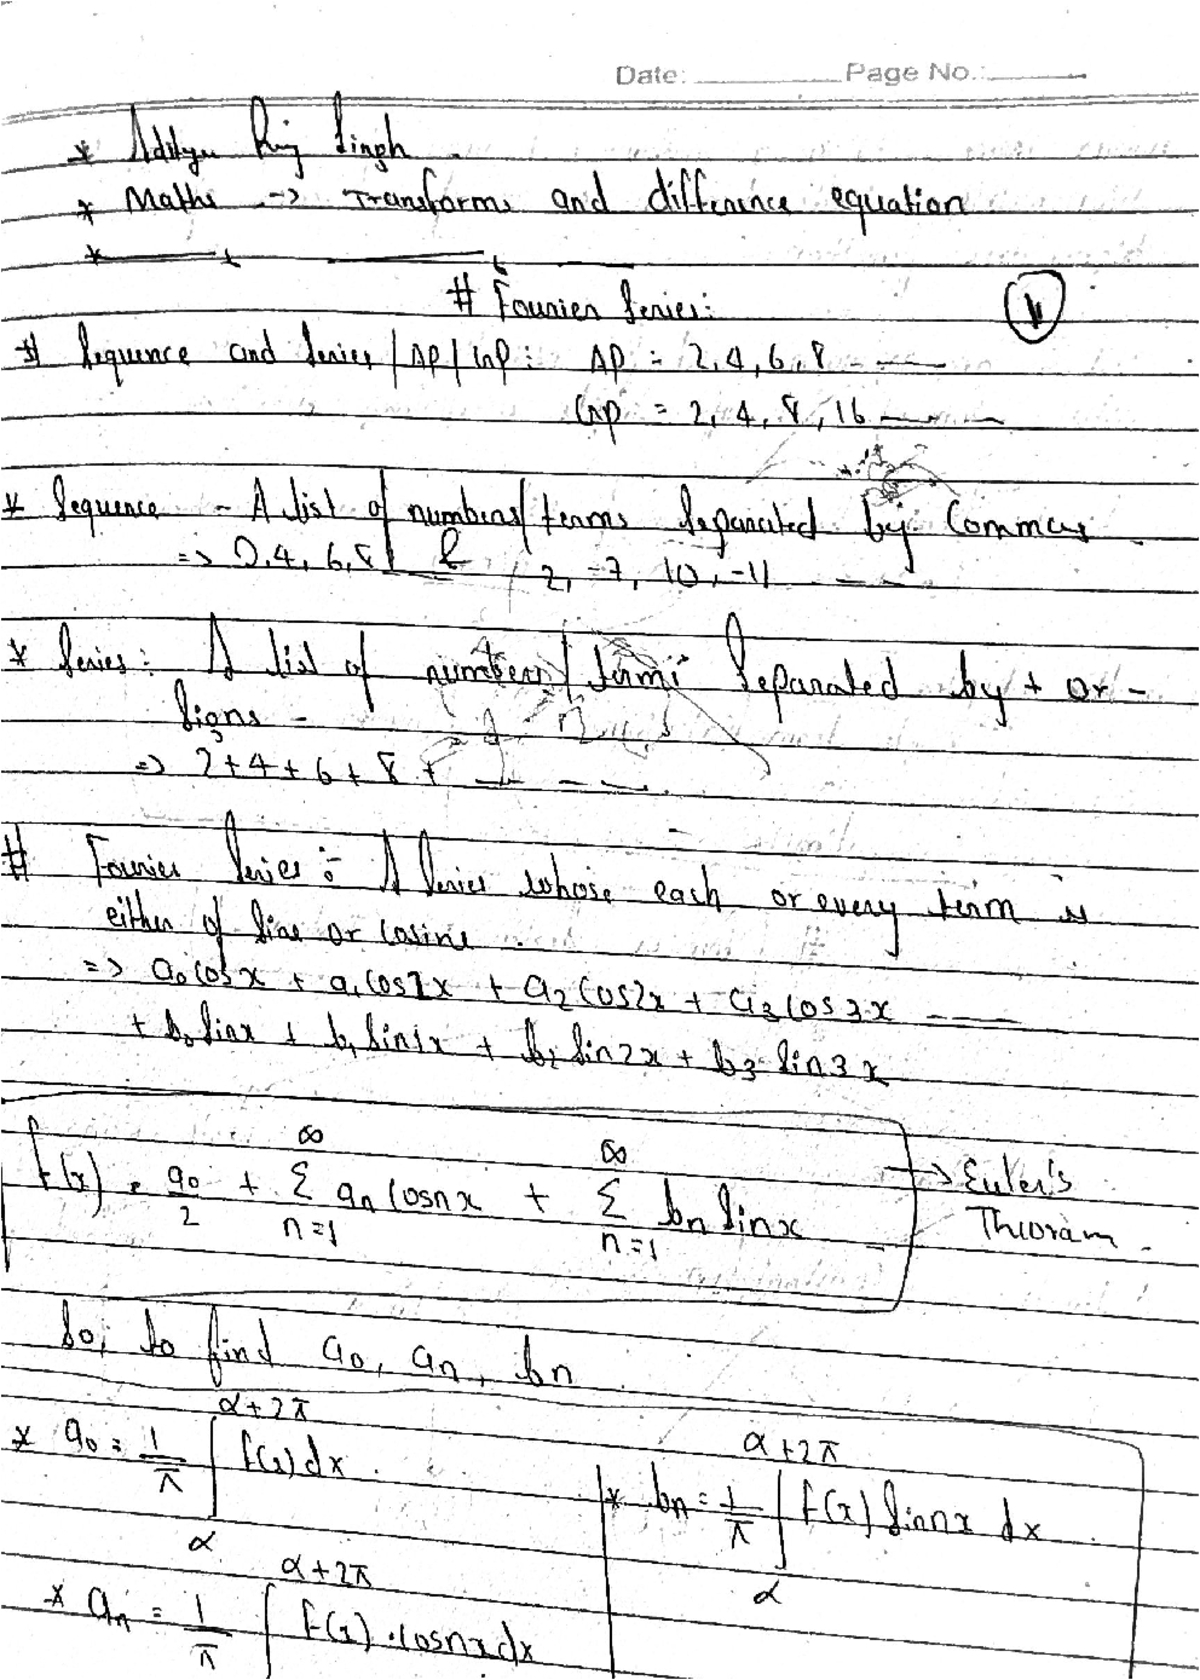 Date: Page No.:
* Aditya Raj Singh
* Maths -> Transforms and difference equation
# Fourier Series:
* Sequence and Series / AP / GP : AP = 2, 4, 6, 8 ----
GP = 2, 4, 8, 16 ----
* Sequence - A list of numbers/terms Separated by Commas
=> 2, 4, 6, 8 & 2, -7, 10, -11 ----
* Series: A list of numbers/terms Separated by + or -
Signs -
=> 2+4+6+8+ ----
# Fourier Series : A Series whose each or every term is
either of Sine or Cosine .
=> a₀ cos x + a₁ cos1x + a₂ cos2x + a₃ cos3x ----
+ b₀ sinx + b₁ sin1x + b₂ sin2x + b₃ sin3x
f(x) = a₀/2 + ∞ Σ n=1 aₙ cosnx + ∞ Σ n=1 bₙ sinx -> Euler's
Theoram.
So, to find a₀, aₙ, bₙ
* a₀ = 1/π ∫ α α+2π f(x) dx.
* bₙ = 1/π ∫ α α+2π f(x) sinnx dx
* aₙ = 1/π ∫ α+2π f(x) . cosnx dx